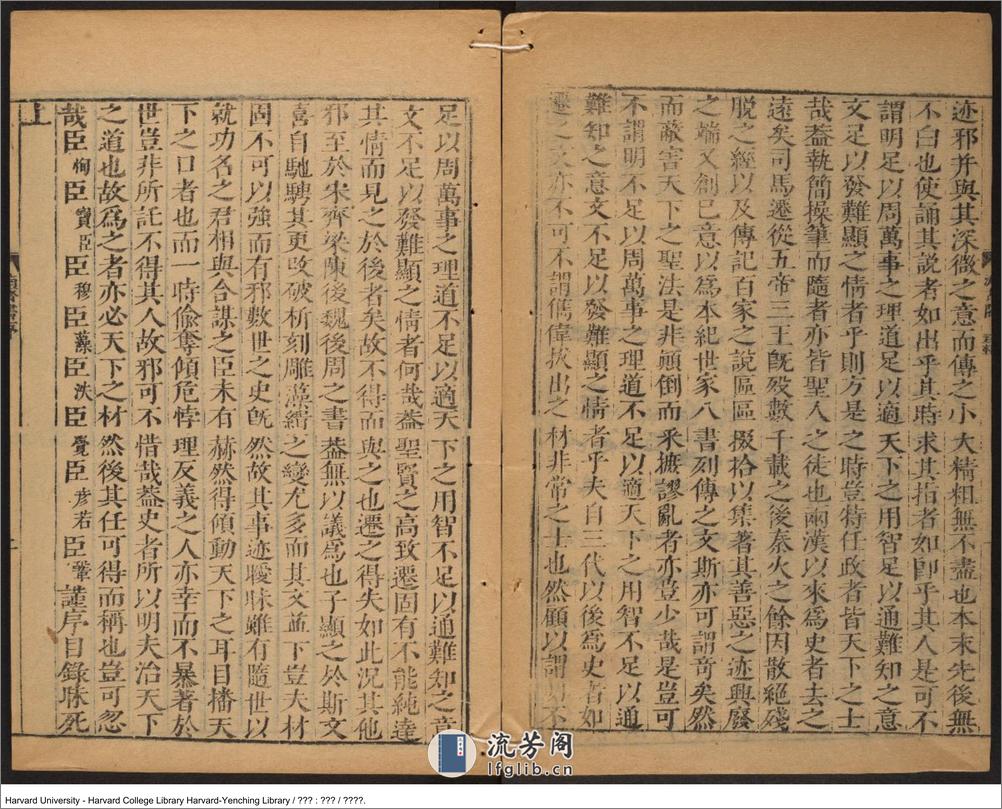 迹邪并與其深微之意而傳之小大精粗無不盡也本末先後無
不白也使誦其說者如出乎其時求其指者如即乎其人是可不
謂明足以周萬事之理道足以適天下之用智足以通難知之意
文足以發難顯之情者乎則方是之時豈特任政者皆天下之士
哉蓋執簡操筆而隨者亦皆聖人之徒也兩漢以來為史者去之
遠矣司馬遷從五帝三王既歿數千載之後秦火之餘因散絕殘
脫之經以及傳記百家之說區區掇拾以集著其善惡之迹興廢
之端又創已意以爲本紀世家八書列傳之文斯亦可謂奇矣然
而蔽害天下之聖法是非顛倒而采摭謬亂者亦豈少哉是豈可
不謂明不足以周萬事之理道不足以適天下之用智不足以通
難知之意文不足以發難顯之情者乎夫自三代以後爲史者如
遷之文亦不可不謂雋偉拔出之材非常之士也然顧以謂明不
足以周萬事之理道不足以適天下之用智不足以通難知之意
文不足以發難顯之情者何哉蓋聖賢之高致遷固有不能純達
其情而見之於後者矣故不得而與之也遷之得失如此况其他
邪至於宋齊梁陳後魏後周之書蓋無以議爲也子顯之於斯文
喜自馳騁其更改破析刻雕藻繢之變尤多而其文益下豈夫材
固不可以強而有邪數世之史既然故其事迹曖昧雖有隨世以
就功名之君相與合謀之臣未有赫然得傾動天下之耳目播天
下之口者也而一時偷奪傾危悖理反義之人亦幸而不暴著於
世豈非所託不得其人故邪可不惜哉蓋史者所以明夫治天下
之道也故爲之者亦必天下之材然後其任可得而稱也豈可忽
哉臣恂臣寶臣臣穆臣藻臣洙臣覺臣彥若臣鞏謹序目錄昧死
上
流芳阁
lfglib.cn
Harvard University - Harvard College Library Harvard-Yenching Library / ??? : ??? / ????.